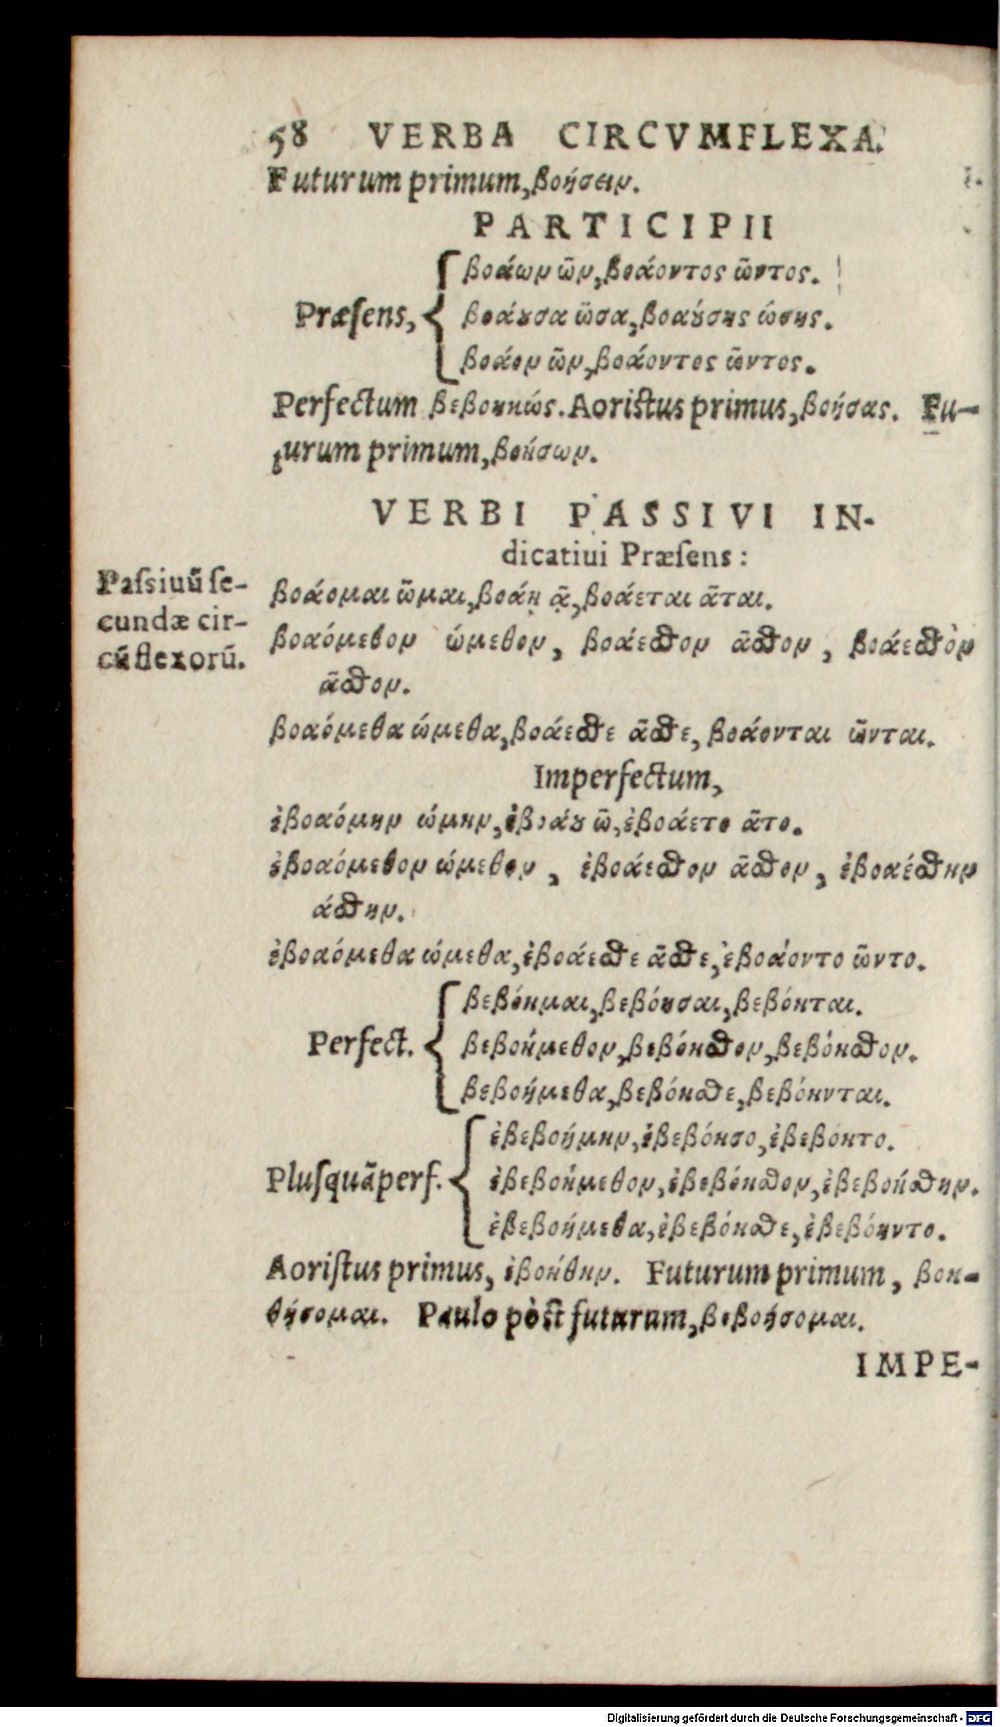 58 VERBA CIRCVMFLEXA.
Futurum primum, βοήσειν.
PARTICIPII
βοάων ῶν, βοάοντος ῶντος.
Præſens, βοάȣσα ῶσα, βοαȣ́σης ώσης.
βοάον ῶν, βοάοντος ῶντος.
Perfectum βεβοηκώς. Aoriſtus primus, βοήσας. Fu-
turum primum, βοήσων.
VERBI PASSIVI IN-
dicatiui Præſens:
Paſsiuũ ſe-
cundæ cir-
cũflexorũ.
βοάομαι ῶμαι, βοάῃ ᾷ, βοάεται ᾶται.
βοαόμεθον ώμεθον, βοάεσθον ᾶσθον, βοάεσθον
ᾶσθον.
βοαόμεθα ώμεθα, βοάεσθε ᾶσθε, βοάονται ῶνται.
Imperfectum,
ἐβοαόμην ώμην, ἐβοάȣ ῶ, ἐβοάετο ᾶτο.
ἐβοαόμεθον ώμεθον, ἐβοάεσθον ᾶσθον, ἐβοαέσθην
άσθην.
ἐβοαόμεθα ώμεθα, ἐβοάεσθε ᾶσθε, ἐβοάοντο ῶντο.
βεβόημαι, βεβόησαι, βεβόηται.
Perfect. βεβοήμεθον, βεβόησθον, βεβόησθον.
βεβοήμεθα, βεβόησθε, βεβόηνται.
ἐβεβοήμην, ἐβεβόησο, ἐβεβόητο.
Pluſquãperf. ἐβεβοήμεθον, ἐβεβόησθον, ἐβεβοήσθην.
ἐβεβοήμεθα, ἐβεβόησθε, ἐβεβόηντο.
Aoriſtus primus, ἐβοήθην. Futurum primum, βοη-
θήσομαι. Paulo pòſt futurum, βεβοήσομαι.
IMPE-
Digitalisierung gefördert durch die Deutsche Forschungsgemeinschaft - DFG